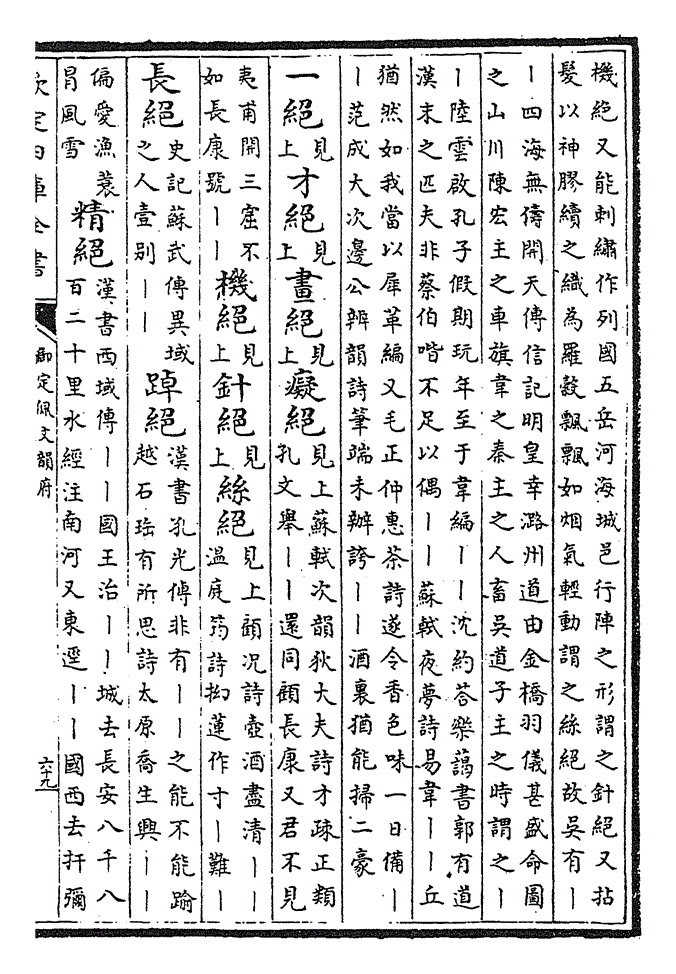 機絶又能刺繡作列國五岳河海城邑行陣之形謂之針絶又拈
髮以神膠續之織為羅縠飄飄如烟氣輕動謂之絲絶故吳有丨
丨四海無儔開天傳信記明皇幸潞州道由金橋羽儀甚盛命圖
之山川陳宏主之車旗韋之秦主之人畜吳道子主之時謂之丨
丨陸雲啟孔子假期玩年至于韋編丨丨沈約荅樂藹書郭有道
漢末之匹夫非蔡伯喈不足以偶丨丨蘇軾夜夢詩易韋丨丨丘
猶然如我當以犀革編又毛正仲惠茶詩遂令香色味一日備丨
丨范成大次邊公辨韻詩筆端未辦誇丨丨酒裏猶能掃二豪
一絶見上才絶見上畫絶見上癡絶見上蘇軾次韻狄大夫詩才疎正類
孔文舉丨丨還同顧長康又君不見
夷甫開三窟不
如長康號丨丨機絶見上針絶見上絲絶見上顧况詩壺酒盡清丨丨
溫庭筠詩拗蓮作寸丨難丨
長絶史記蘇武傳異域
之人壹别丨丨踔絶漢書孔光傳非有丨丨之能不能踰
越石珤有所思詩太原喬生興丨丨
偏愛漁蓑
冐風雪精絶漢書西域傳丨丨國王治丨丨城去長安八千八
百二十里水經注南河又東逕丨丨國西去扜彌
欽定四庫全書
御定佩文韻府
六十九